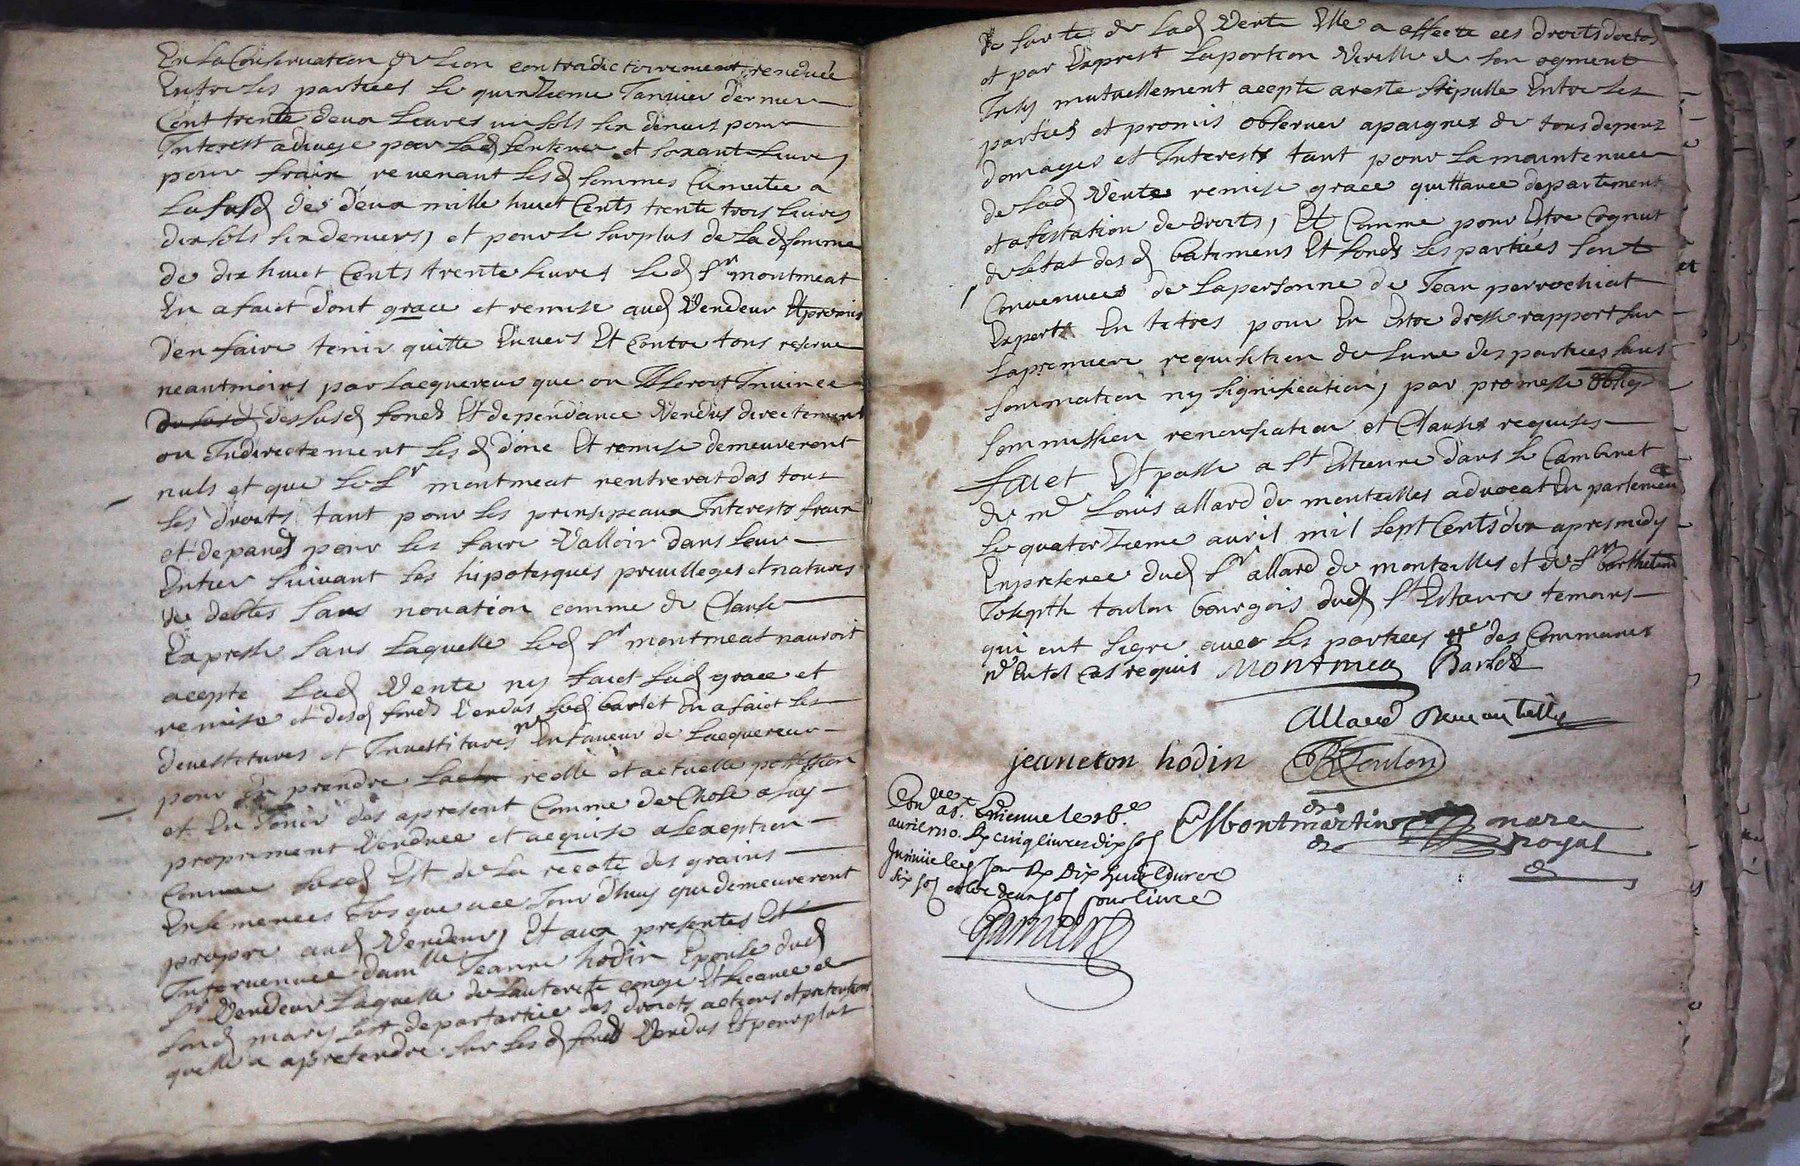 En la Conservation de Lion contradictoirement rendüee
Entre les partiees le quinzieme Janvier dernier
Cent trente deux Livres un sols six deniers pour
Interest adjuge par lad sentence et soixant Livres
pour frais revenant lesd sommes Cumulee a
La susd des deux mille huict Cents trente trois livres
dix sols six deniers, et pour le surplus de lad somme
de dix huict Cents trente livres led Sr montmeat
En a faict dont grace et remise aud Vendeur Et promis
d'en faire tenir quitte Envers Et Contre tous reserve
neantmoins par lacquereur que ou Il seroit Inuincé
desdusd fonds Et dependance Vendus directement
ou Indirectement les d donc Et remise demeureront
nuls et que le Sr montmeat rentrerat das tous
les droits tant pour les prinsipeaux Interests frais
et depands pour les faire Valloir dans leur
Entier suivant les hipoteques privilleges et natures
de debtes sans novation comme de Clause
Expresse sans laquelle led Sr montmeat nauroit
acepte lad Vente ny faict lad grace et
remise et desd fonds Vendus led barlet En a faict les
devestitures et Investitures En faveur de lacquereur
pour En prendre la reelle et actuelle possession
et En Jouir des apresent Comme de Chose a luy
proprement Vendüee et acquise a lexeption
Comme susd Est de la recolte des grains
Ensemences Jusque a ce Jourd'huy qui demeureront
propre aud Vendeur, Et aux presentes Est
Intervenüee damlle Jeanne hodin Epouse dud
Sr Vendeur Laquelle de l'autorite conge Et licance de
sond mary sest departartie des droits actions et pretentions
quelle a apretendre sur lesd fonds Vendus Et pour plus
de surte de lad Vente Elle a affecte ces droits dotos
et par Exprest la portion Virille de son ogment
Insy mutuellement acepte areste stipulle Entre les
parties et promis observer a paignes de tous depens
domages et Interests tant pour la maintenüee
de lad Vente remise grace quittance departement
et afestation de droits, Et Comme pour Estre Cognut
de letat desd batimens Et fonds les partiees sont
Convenües de la personne de Jean perrochiat
Experts En titres pour En Estre dresse rapport sur
la premiere requisition de lune des partiees sans
sommation ny signification, par promesse oblig
sommission renonsiation et Clauses requises
faict Et passe a St Estienne dans le Cambinet
de me Louis allard de monteilles advocat En parlement
le quatorzieme auril mil sept Cents dix apres midy
En presence dud Sr allard de monteilles et de Sr barthelemi
Joseph toulon bourgois dud St Estienne temoins
qui ont signe avec les partiees des Communes
Montmea Barlet
Allard De monteilles
jeaneton hodin BJ Toulon
Conlee a St Etienne le 16e
auril 1710 Rx cinq livres dix sol
Insinüe led jour Rx Dix huict livres
six sol et les deux sol pour livre
Garnier
CMontmartin nore
royal